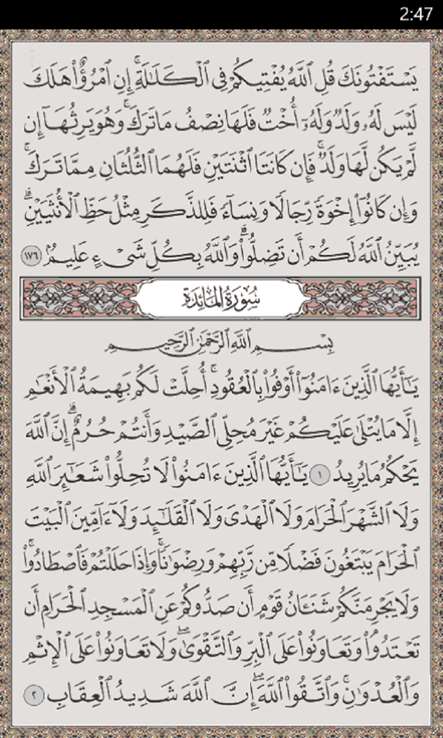 2:47
يَسْتَفْتُونَكَ قُلِ ٱللَّهُ يُفْتِيكُمْ فِى ٱلْكَلَـٰلَةِ ۚ إِنِ ٱمْرُؤٌا۟ هَلَكَ
لَيْسَ لَهُۥ وَلَدٌ وَلَهُۥٓ أُخْتٌ فَلَهَا نِصْفُ مَا تَرَكَ ۚ وَهُوَ يَرِثُهَآ إِن
لَّمْ يَكُن لَّهَا وَلَدٌ ۚ فَإِن كَانَتَا ٱثْنَتَيْنِ فَلَهُمَا ٱلثُّلُثَانِ مِمَّا تَرَكَ ۚ
وَإِن كَانُوٓا۟ إِخْوَةً رِّجَالًا وَنِسَآءً فَلِلذَّكَرِ مِثْلُ حَظِّ ٱلْأُنثَيَيْنِ ۗ
يُبَيِّنُ ٱللَّهُ لَكُمْ أَن تَضِلُّوا۟ ۗ وَٱللَّهُ بِكُلِّ شَىْءٍ عَلِيمٌۢ ١٧٦
سُورَةُ المَائِدَةِ
بِسْمِ ٱللَّهِ ٱلرَّحْمَـٰنِ ٱلرَّحِيمِ
يَـٰٓأَيُّهَا ٱلَّذِينَ ءَامَنُوٓا۟ أَوْفُوا۟ بِٱلْعُقُودِ ۚ أُحِلَّتْ لَكُم بَهِيمَةُ ٱلْأَنْعَـٰمِ
إِلَّا مَا يُتْلَىٰ عَلَيْكُمْ غَيْرَ مُحِلِّى ٱلصَّيْدِ وَأَنتُمْ حُرُمٌ ۗ إِنَّ ٱللَّهَ
يَحْكُمُ مَا يُرِيدُ ١ يَـٰٓأَيُّهَا ٱلَّذِينَ ءَامَنُوا۟ لَا تُحِلُّوا۟ شَعَـٰٓئِرَ ٱللَّهِ
وَلَا ٱلشَّهْرَ ٱلْحَرَامَ وَلَا ٱلْهَدْىَ وَلَا ٱلْقَلَـٰٓئِدَ وَلَآ ءَآمِّينَ ٱلْبَيْتَ
ٱلْحَرَامَ يَبْتَغُونَ فَضْلًا مِّن رَّبِّهِمْ وَرِضْوَٰنًا ۚ وَإِذَا حَلَلْتُمْ فَٱصْطَادُوا۟ ۚ
وَلَا يَجْرِمَنَّكُمْ شَنَـَٔانُ قَوْمٍ أَن صَدُّوكُمْ عَنِ ٱلْمَسْجِدِ ٱلْحَرَامِ أَن
تَعْتَدُوا۟ ۘ وَتَعَاوَنُوا۟ عَلَى ٱلْبِرِّ وَٱلتَّقْوَىٰ ۖ وَلَا تَعَاوَنُوا۟ عَلَى ٱلْإِثْمِ
وَٱلْعُدْوَٰنِ ۚ وَٱتَّقُوا۟ ٱللَّهَ ۖ إِنَّ ٱللَّهَ شَدِيدُ ٱلْعِقَابِ ٢